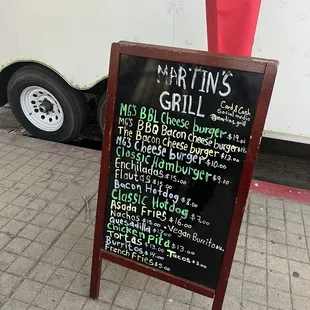 MARTIN'S
GRILL
Card & Cash
Social media
MG'S BBL Cheese burger $19
MG'S BBQ Bacon cheese burger
The Bacon cheese burger $13.00
MG'S Cheese burger $10.00
Classic Hamburger $9.00
Enchiladas $15.00
Flautas $15.00
Bacon Hotdog $8.00
Classic Hotdog $7.00
Asada Fries $16.00
Nachos $15.00 Vegan Burrito
Quesadilla $13.00
Chicken Pita $13.00
Tortas $13.00 Tacos
Burritos $14.00
French Fries $5.00